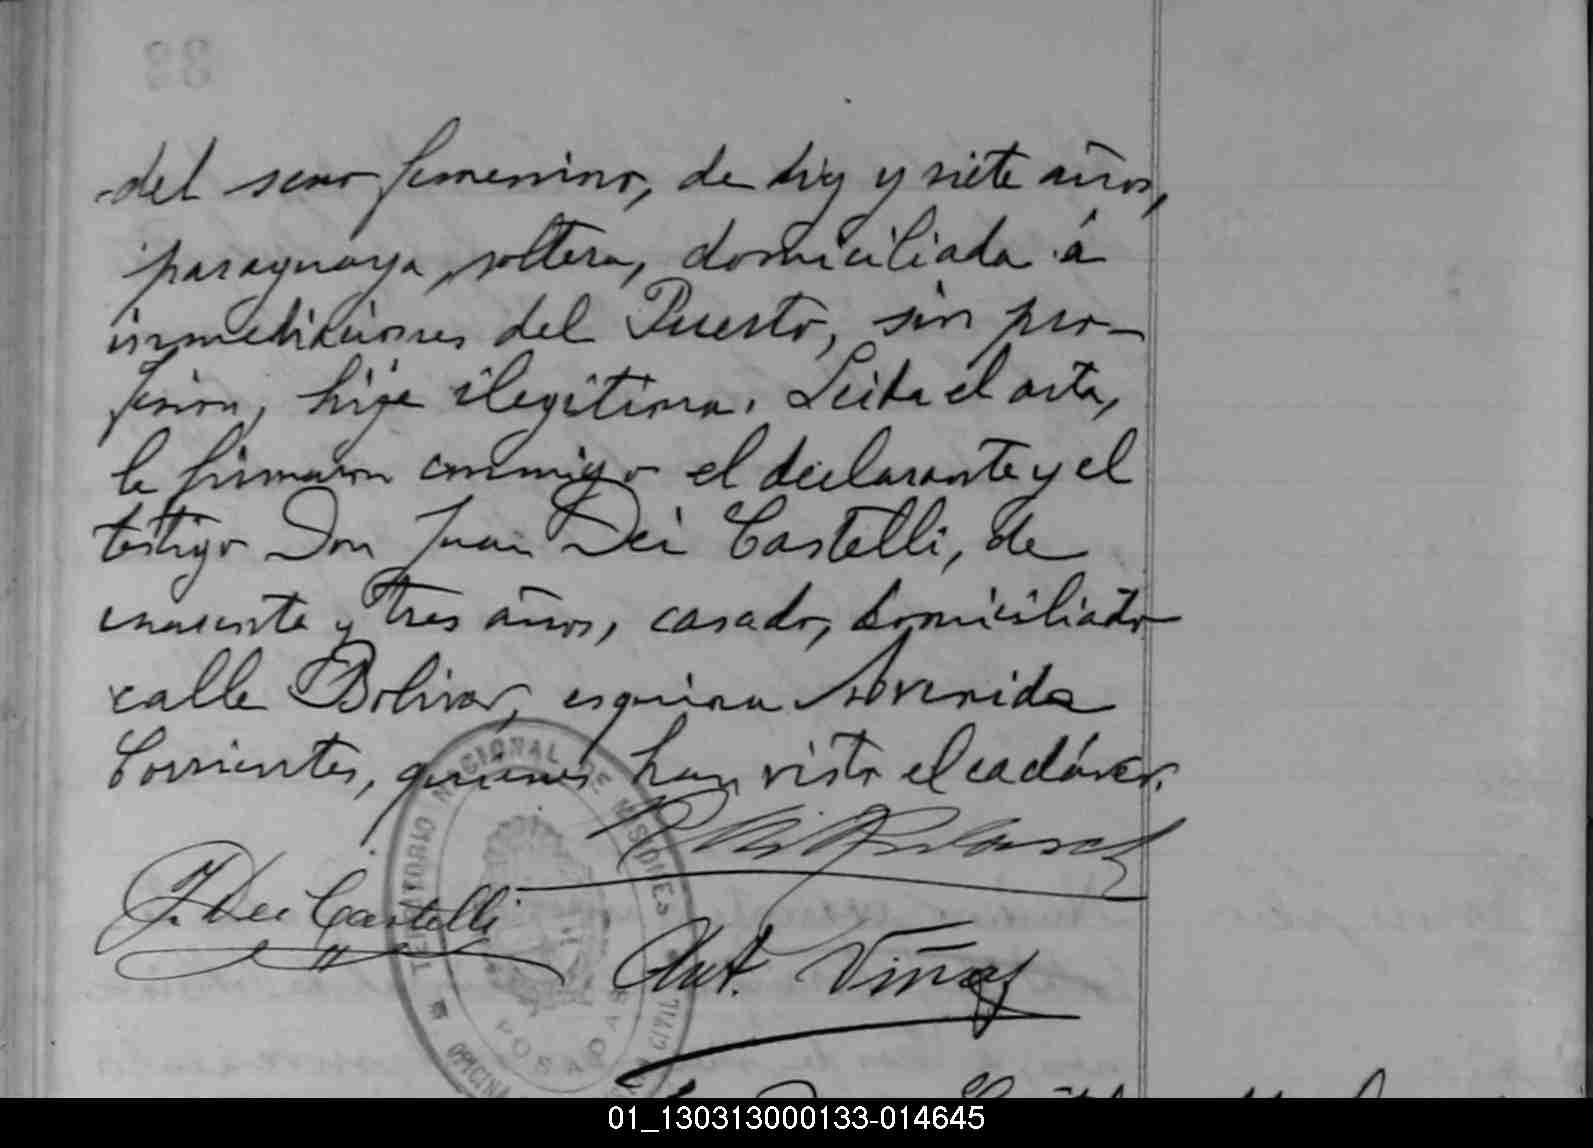 33
del sexo femenino, de diez y siete años,
paraguaya, soltera, domiciliada á
inmediaciones del Puerto, sin pro-
fesion, hija ilegítima. Leida el acta,
la firmaron conmigo el declarante y el
testigo Don Juan Dei Castelli, de
cuarenta y tres años, casado, domiciliado
calle Bolivar, esquina Avenida
Corrientes, quienes han visto el cadáver.
J. Dei Castelli
Ant. Viñas
TERRITORIO NACIONAL DE MISIONES
OFICINA
CIVIL
POSADAS
01_130313000133-014645